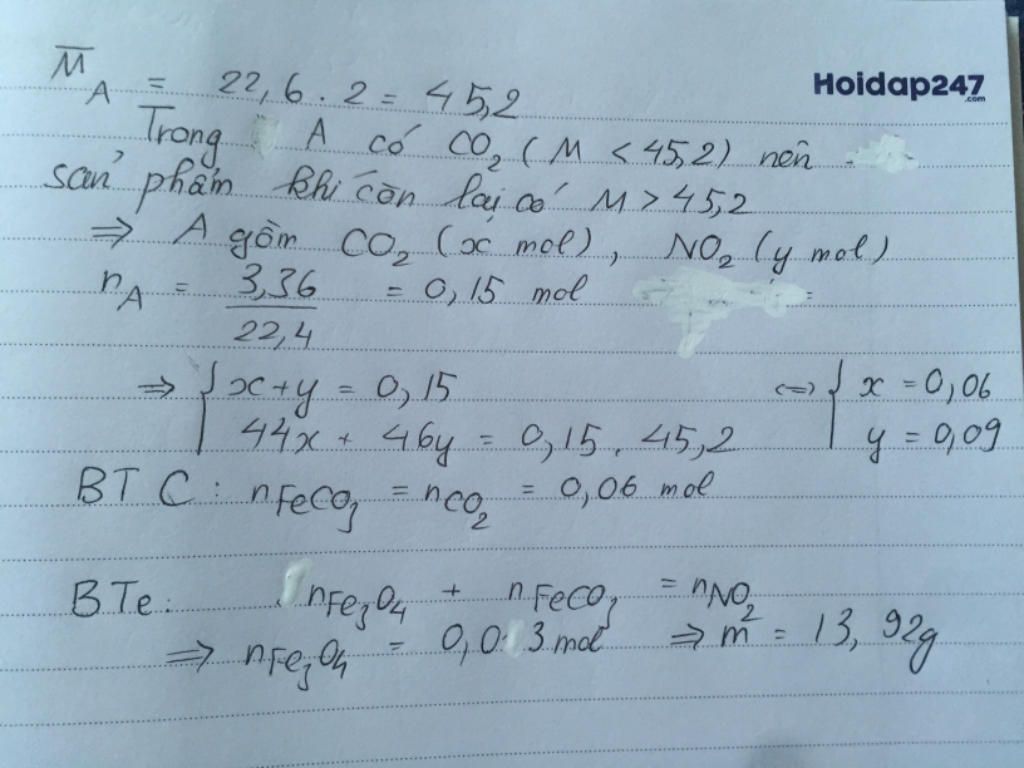 M̅_A = 22,6 . 2 = 45,2
Hoidap247
.com
Trong A có CO₂ (M < 45,2) nên
sản phẩm khí còn lại có M > 45,2
=> A gồm CO₂ (x mol), NO₂ (y mol)
n_A = 3,36/22,4 = 0,15 mol
=> { x + y = 0,15 <=> { x = 0,06
44x + 46y = 0,15 . 45,2 y = 0,09
BT C : n_FeCO₃ = n_CO₂ = 0,06 mol
BTe : n_Fe₃O₄ + n_FeCO₃ = n_NO₂
=> n_Fe₃O₄ = 0,03 mol => m = 13,92g